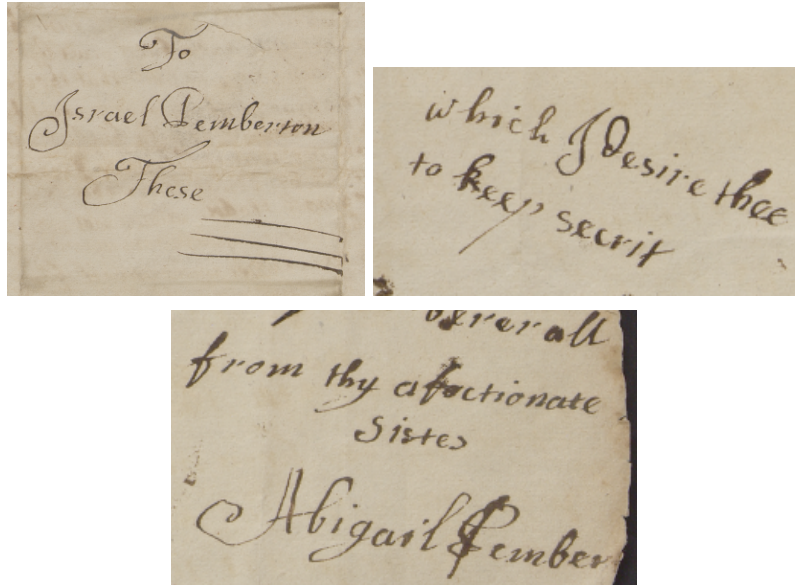 To
Israel Pemberton
These
which I desire thee
to keep secrit
from thy afectionate
Sister
Abigail Pember